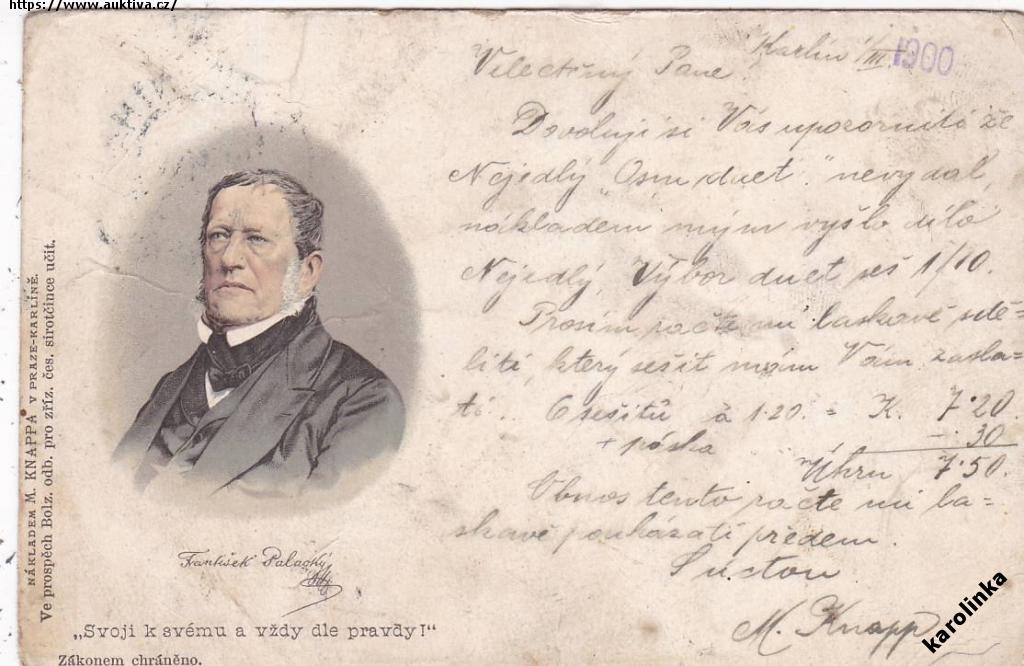 https://www.auktiva.cz/
Karlín 1/III. 1900
Velectěný Pane.
Dovoluji si Vás upozorniti že
Nejedlý „Osm duet“ nevydal,
nákladem mým vyšlo dílo
Nejedlý, Výbor duet seš 1/10.
Prosím račte mi laskavě sdě-
liti, který sešit mám Vám zasla-
ti. 6 sešitů à 1·20 = K. 7·20
+ páska — 30
Úhrn 7·50.
Obnos tento račte mi la-
skavě poukázati předem.
S úctou
M. Knapp
NÁKLADEM M. KNAPPA V PRAZE-KARLÍNĚ.
Ve prospěch Bolz. odb. pro zříz. čes. sirotčince učit.
František Palacký
„Svoji k svému a vždy dle pravdy!“
Zákonem chráněno.
karolinka